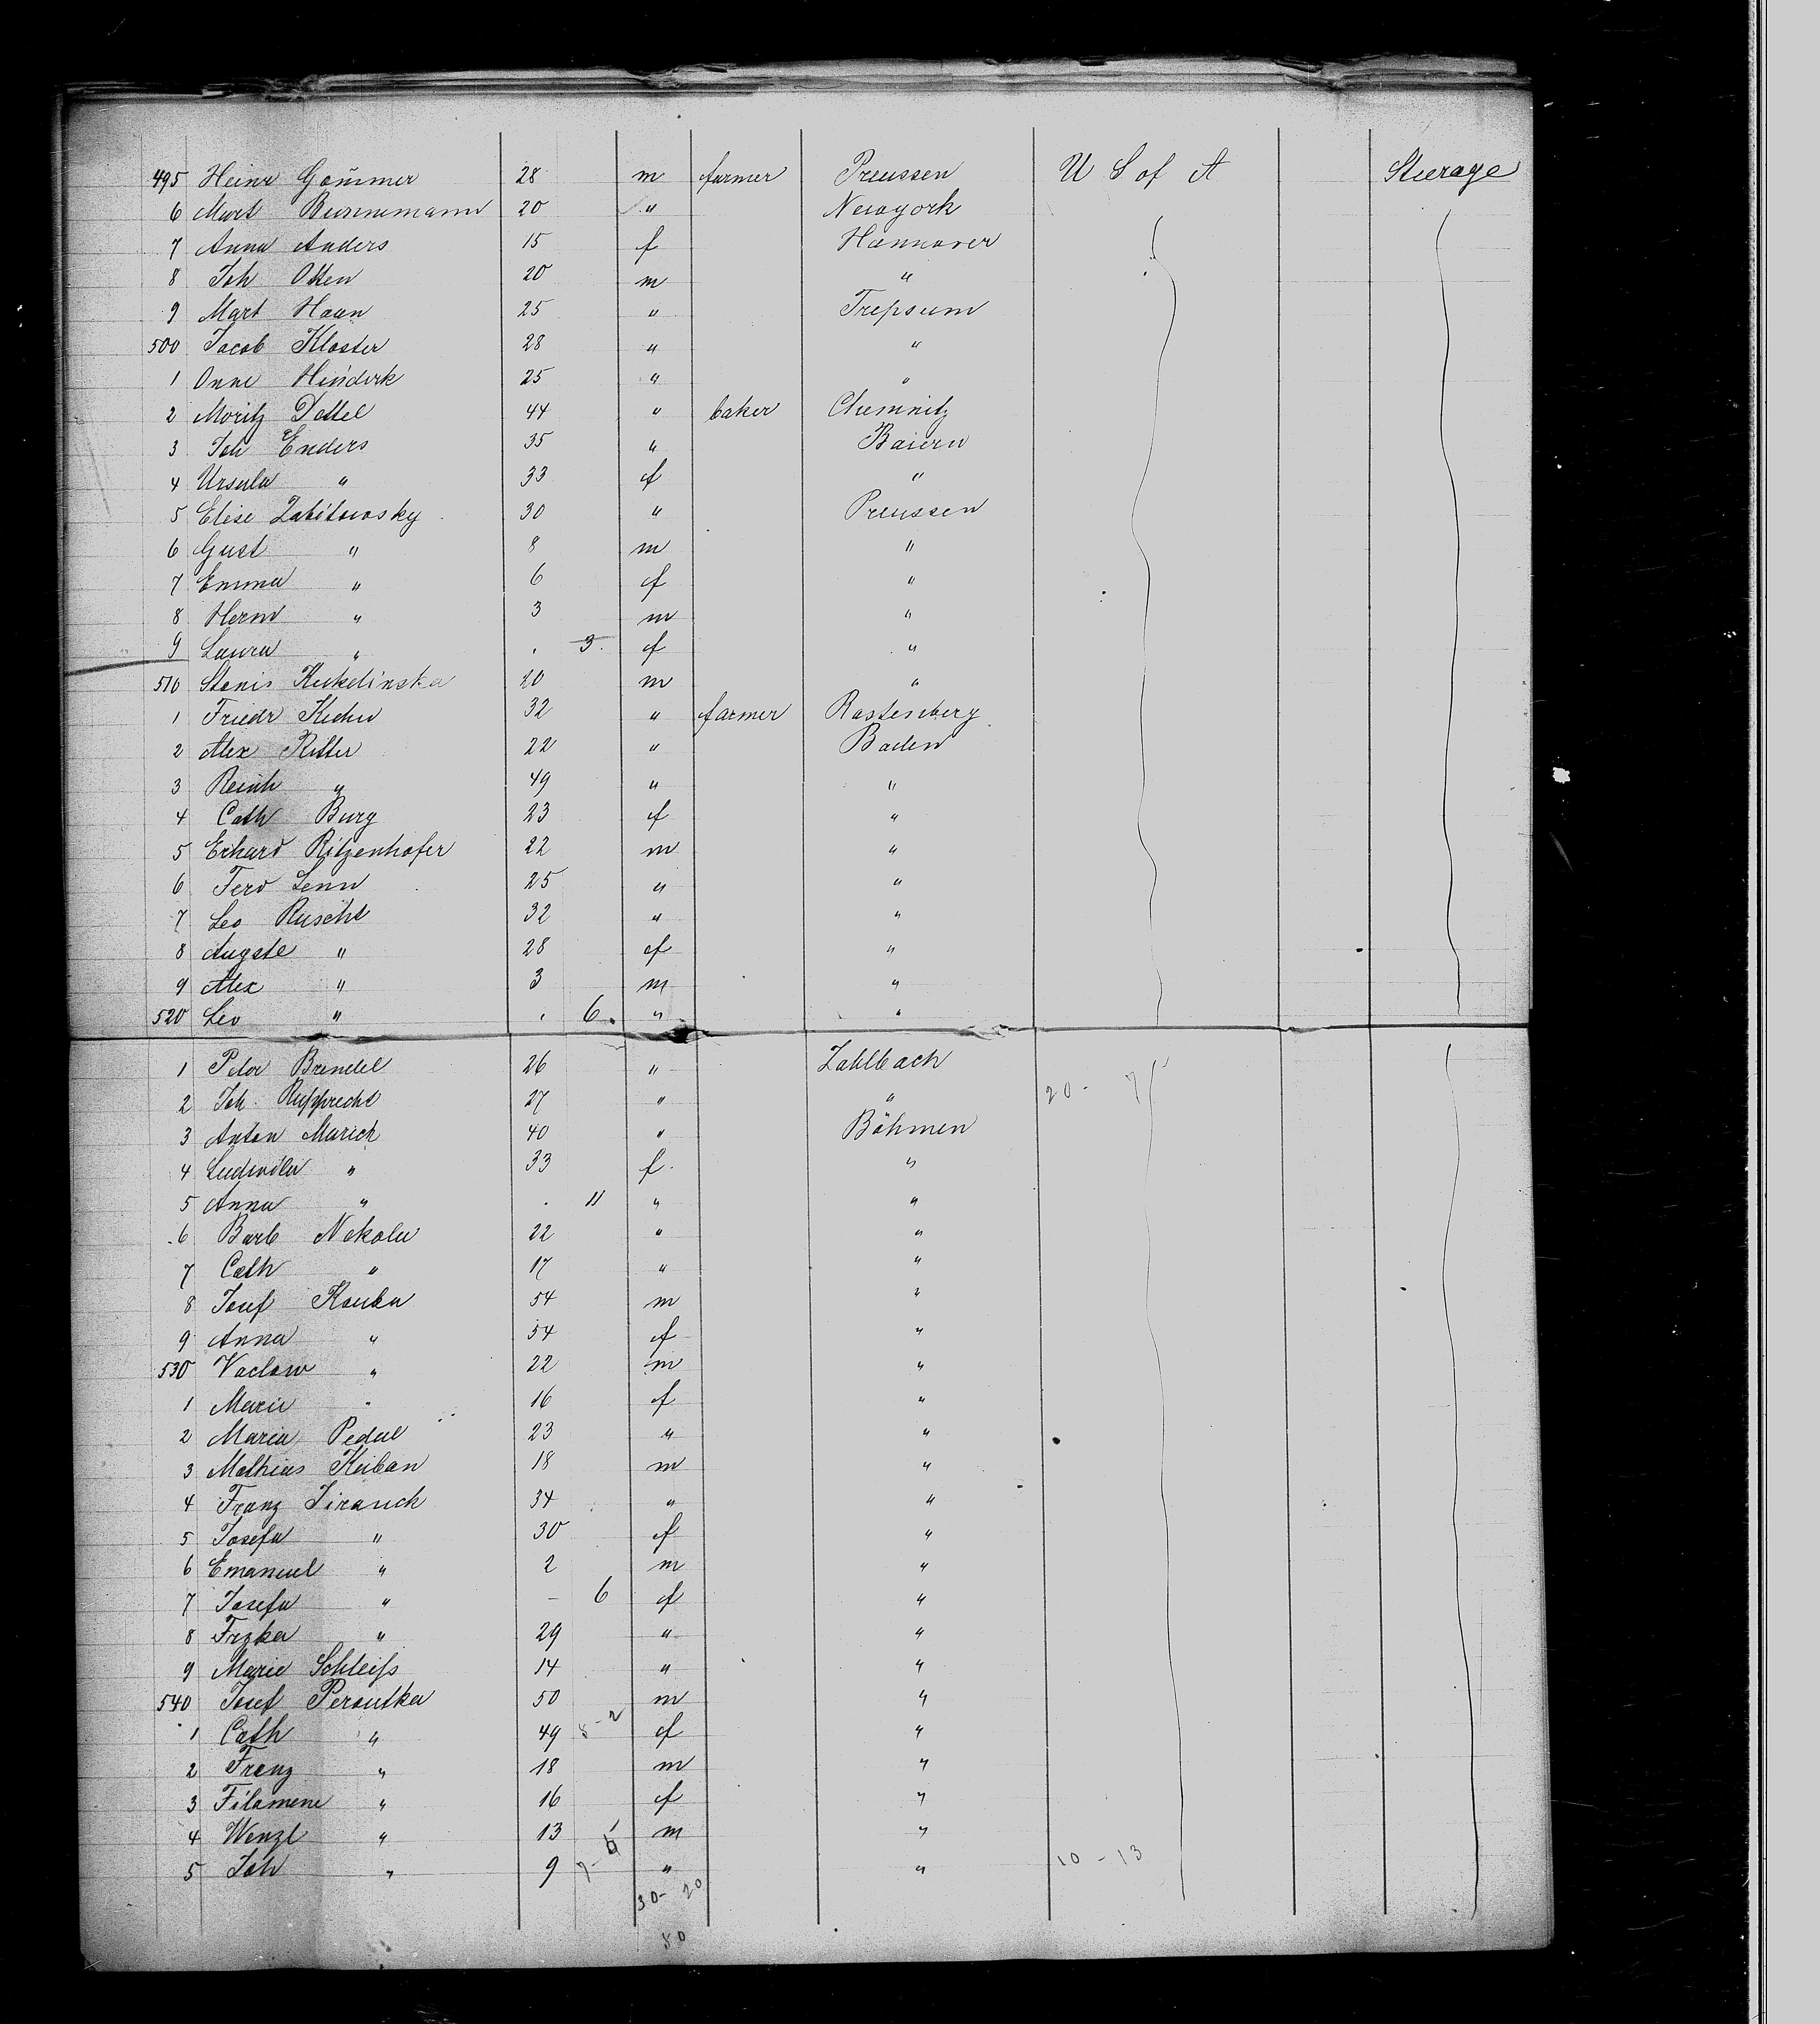 495 Heinr Gom̄mer 28 m farmer Preussen U S of A Steerage
6 Mart Bunnemann 20 " Newyork
7 Anna Anders 15 f Hannover
8 Joh Otten 20 m "
9 Mart Haan 25 " Trepsum
500 Jacob Kloster 28 " "
1 Onne Hinderk 25 " "
2 Moritz Dettel 44 " baker Chemnitz
3 Joh Enders 35 " Baiern
4 Ursula " 33 f "
5 Elise Zabitowsky 30 " Preussen
6 Gust " 8 m "
7 Emma " 6 f "
8 Herm " 3 m "
9 Laura " . 3. f "
510 Stanis Kukelinska 20 m "
1 Friedr Kuhn 32 " farmer Rastenberg
2 Alex Ritter 22 " Baden
3 Reinh " 49 " "
4 Cath Burg 23 f "
5 Erhard Ritzenhofer 22 m "
6 Ferd Lenn 25 " "
7 Leo Ruscht 32 " "
8 Augste " 28 f "
9 Alex " 3 m "
520 Leo " . 6. " "
1 Peter Brendel 26 " Zahlbach
2 Joh. Rupprecht 27 " " 20 - 7
3 Anton Marich 40 " Böhmen
4 Ludmila " 33 f. "
5 Anna " . 11 " "
6 Barb Nekola 22 " "
7 Cath " 17 " "
8 Josef Kouba 54 m "
9 Anna " 54 f "
530 Vaclaw " 22 m "
1 Marie " 16 f "
2 Maria Pedal 23 " "
3 Mathias Kuban 18 m "
4 Franz Jirauch 34 " "
5 Josefa " 30 f "
6 Emanuel " 2 m "
7 Josefa " - 6 f "
8 Frzka " 29 " "
9 Marie Schleifs 14 " "
540 Josef Peroutka 50 m "
1 Cath " 49 8-2 f "
2 Franz " 18 m "
3 Filomene " 16 f "
4 Wenzl " 13 m "
5 Joh " 9 7- " " 10 - 13
30- 20
50